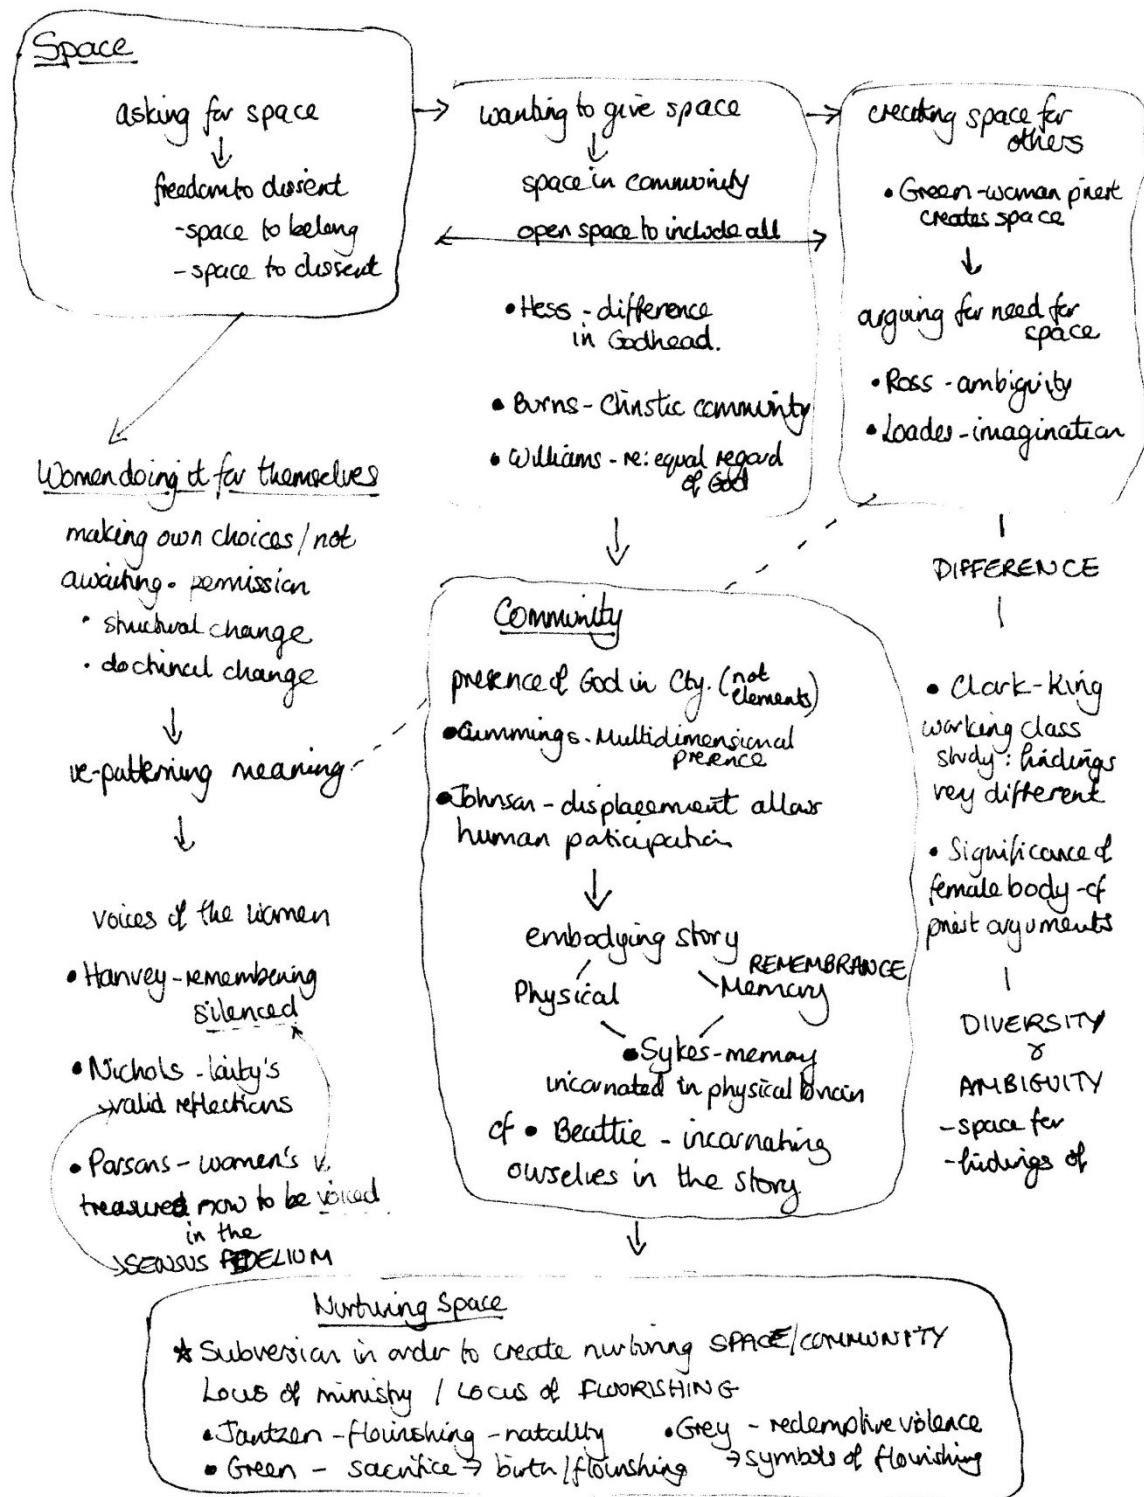 Space
asking for space
↓
freedom to dissent
-space to belong
-space to dissent
→
wanting to give space
↓
space in community
open space to include all
• Hess - difference
in Godhead.
• Burns - Christic community
• Williams - re: equal regard
of God
→
creating space for
others
• Green - woman priest
creates space
↓
arguing for need for
space
• Ross - ambiguity
• Loades - imagination
Women doing it for themselves
making own choices / not
awaiting permission
• structural change
• doctrinal change
↓
re-patterning meaning
↓
voices of the women
• Hanvey - remembering
silenced
• Nichols - laity's
valid reflections
• Parsons - women's v.
treasured now to be voiced
in the
SENSUS FIDELIUM
↓
Community
presence of God in Cty. (not
elements)
• Cummings - Multidimensional
presence
• Johnson - displacement allows
human paticipation
↓
embodying story
REMEMBRANCE
Physical Memory
• Sykes - memory
incarnated in physical brain
cf • Beattie - incarnating
ourselves in the story
DIFFERENCE
• Clark-King
working class
study: findings
very different
• Significance of
female body - cf
priest arguments
DIVERSITY
&
AMBIGUITY
- space for
- findings of
↓
Nurturing Space
★ Subversion in order to create nurturing SPACE/COMMUNITY
Locus of ministry / LOCUS OF FLOURISHING
• Jantzen - flourishing - natality • Grey - redemptive violence
• Green - sacrifice → birth/flourishing → symbols of flourishing